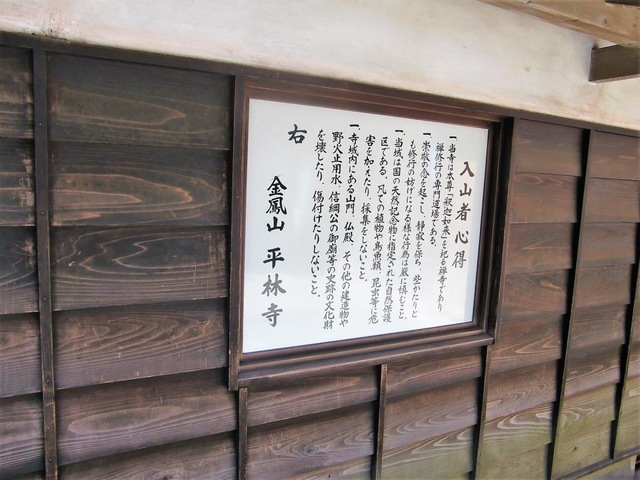 入山者心得
一、当寺は本尊「釈迦如来」を祀る禅寺であり
禅修行の専門道場である。
一、崇敬の念を起こし、静寂を保ち、些かたりと
も修行の妨げになる様な行為は厳に慎むこと。
一、当域は国の天然記念物に指定された自然保護
区である。凡ての植物や鳥魚類、昆虫等に危
害を加えたり、採集をしないこと。
一、寺域内にある山門、仏殿、その他の建造物や
野火止用水、信綱公の御廟等の史跡の文化財
を壊したり、傷付けたりしないこと。
右
金鳳山 平林寺